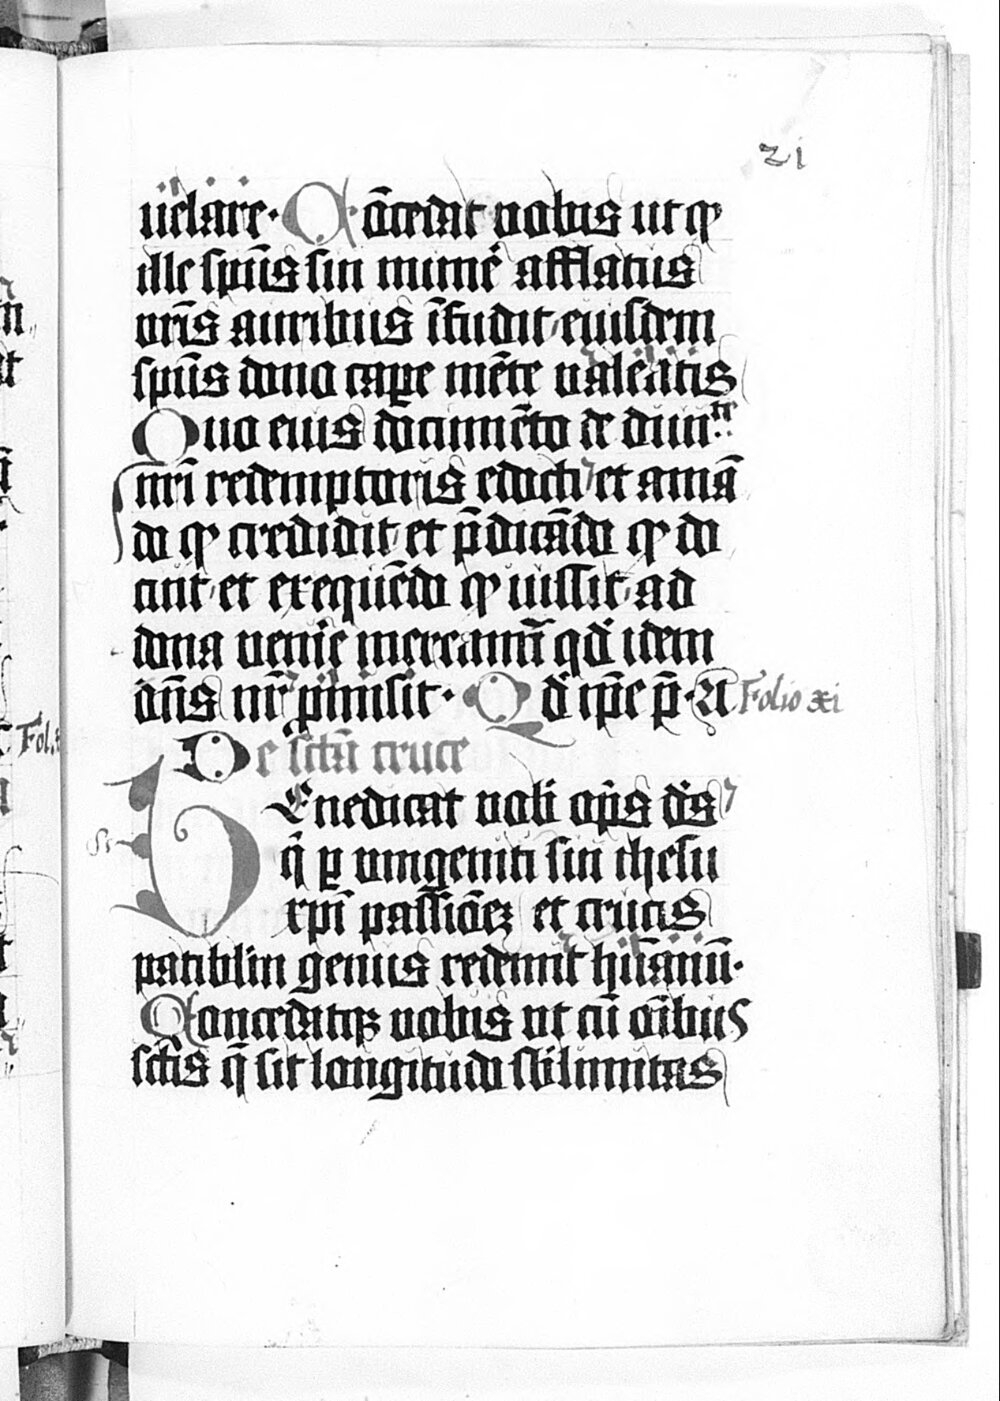 21
uelare. Cōcedat uobis ut qđ
ille spūs sui munere afflatus
vr̄is auribus īfudit, eiusdem
spūs dono capere mēte ualeatis
Quo eius docum̄ēto de diuitate
nr̄i redemptoris edocti et amā
do qđ credidit, et p̄dicādo qđ do
cuit, et exequēdo qđ iussit, ad
dona uenire mereamī q̄d idem
dn̄s nr̄ p̄misit. Qd̄ ip̄e p̄. A Folio xi
De sctā cruce
Benedicat uobis op̄s d̄s
q̄ p unigeniti sui ihesu
xp̄i passiōez et crucis
patibulū genus redemit hūanū.
Concedatqz uobis ut cū oībus
sctīs q̄ sit longitudo sblimitas